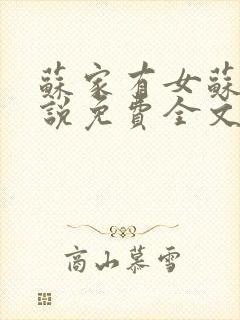 蘇家有女蘇
說免費全文
高山慕雪